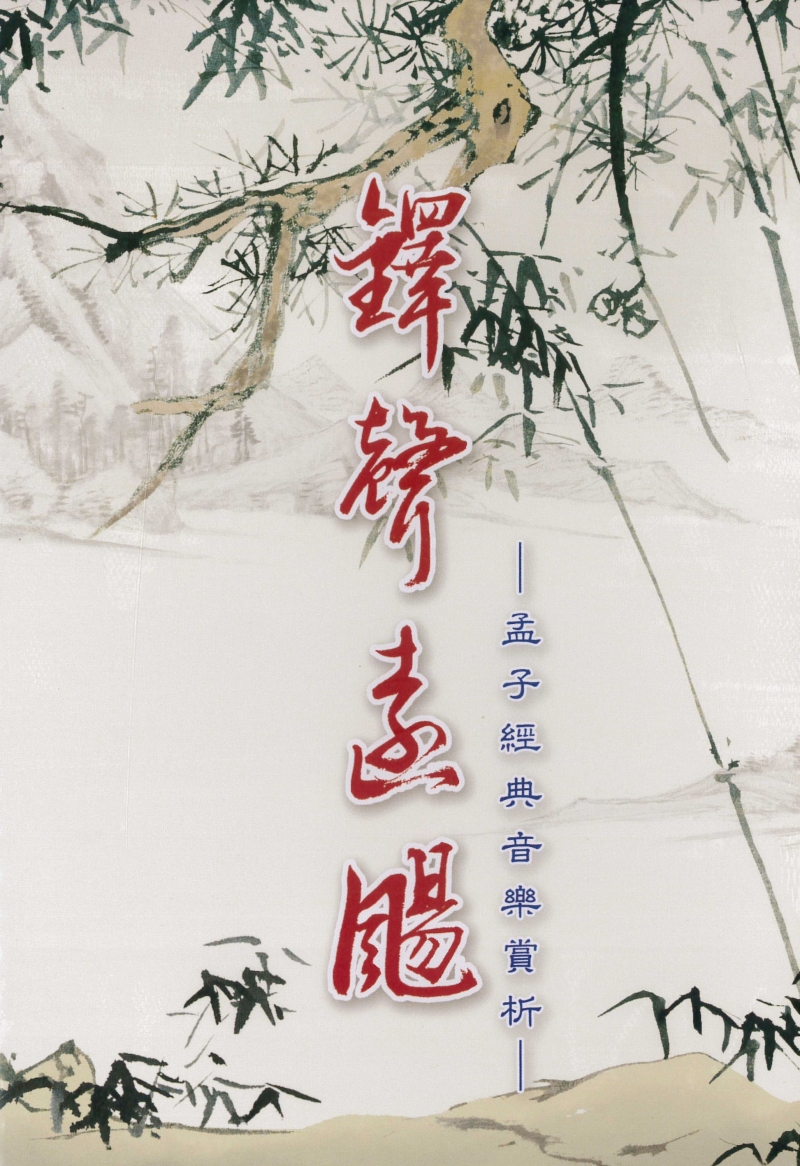 鐸聲遠颺
—孟子經典音樂賞析—